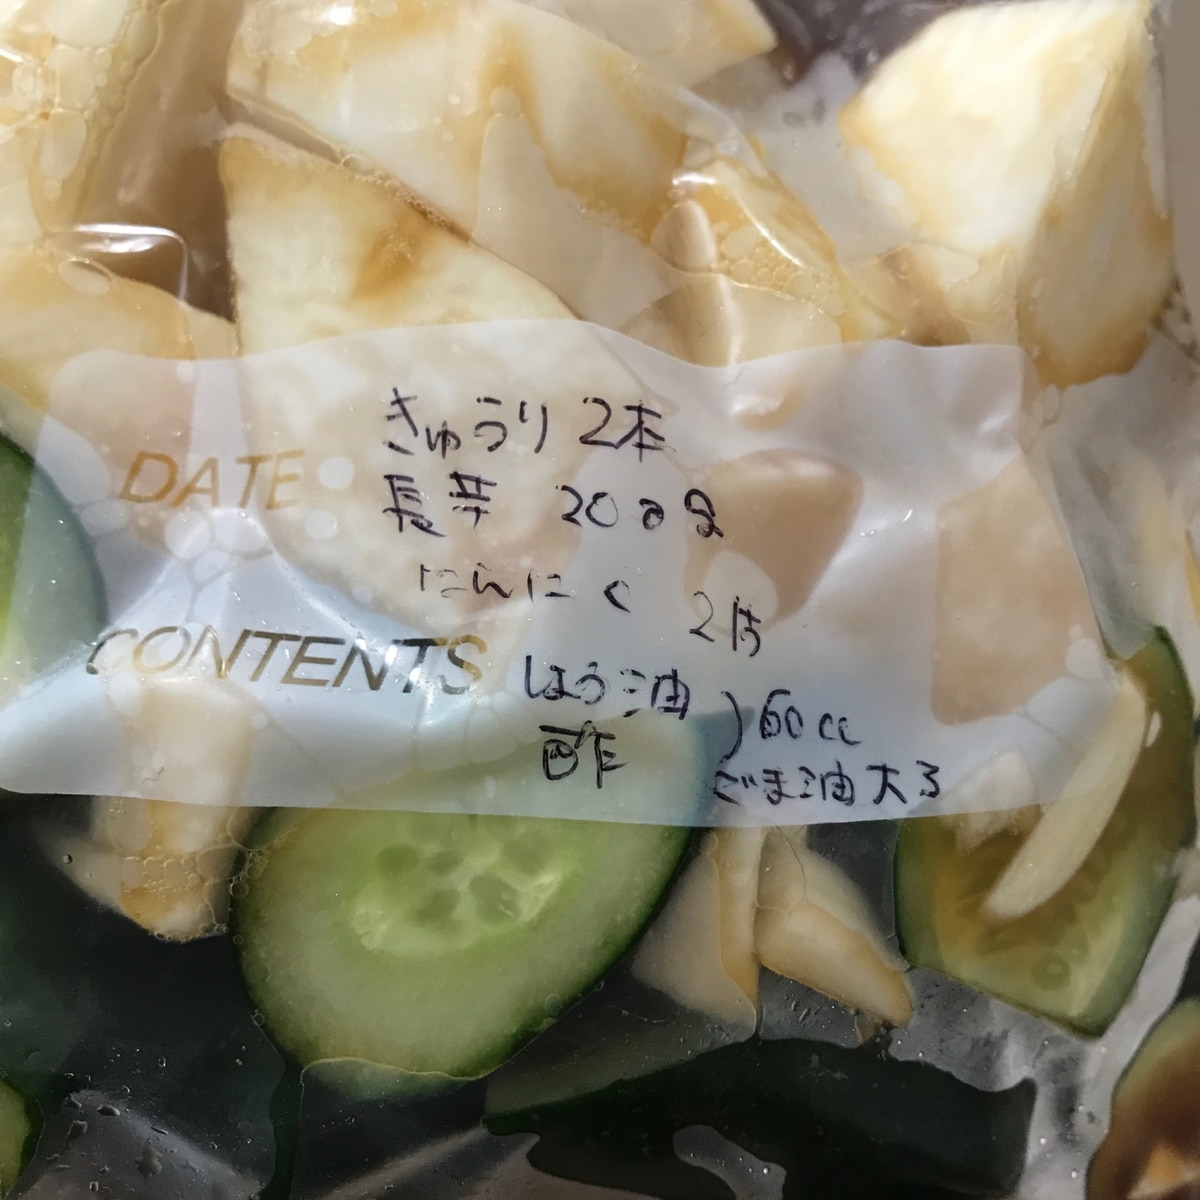 きゅうり 2本
DATE
長芋 200g
にんにく 2片
CONTENTS
しょう油
酢 )60cc
ごま油大3